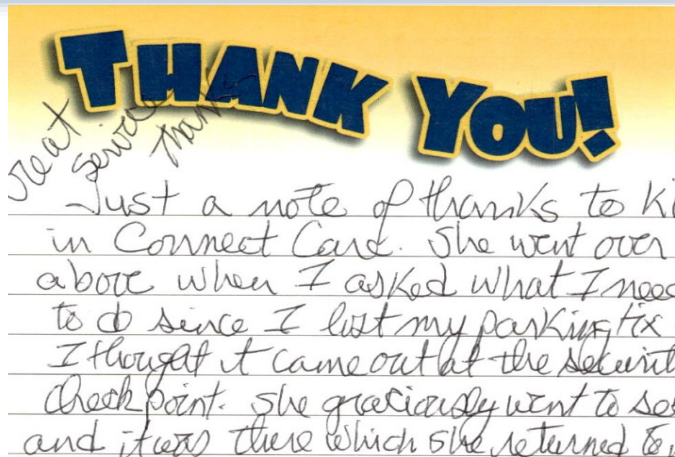 THANK YOU!
Great
service
Thanks
Just a note of thanks to Ki
in Connect Card. She went over
above when I asked what I need
to do since I lost my parking tix
I thought it came out at the securit
check point. She graciously went to se
and it was there which she returned to